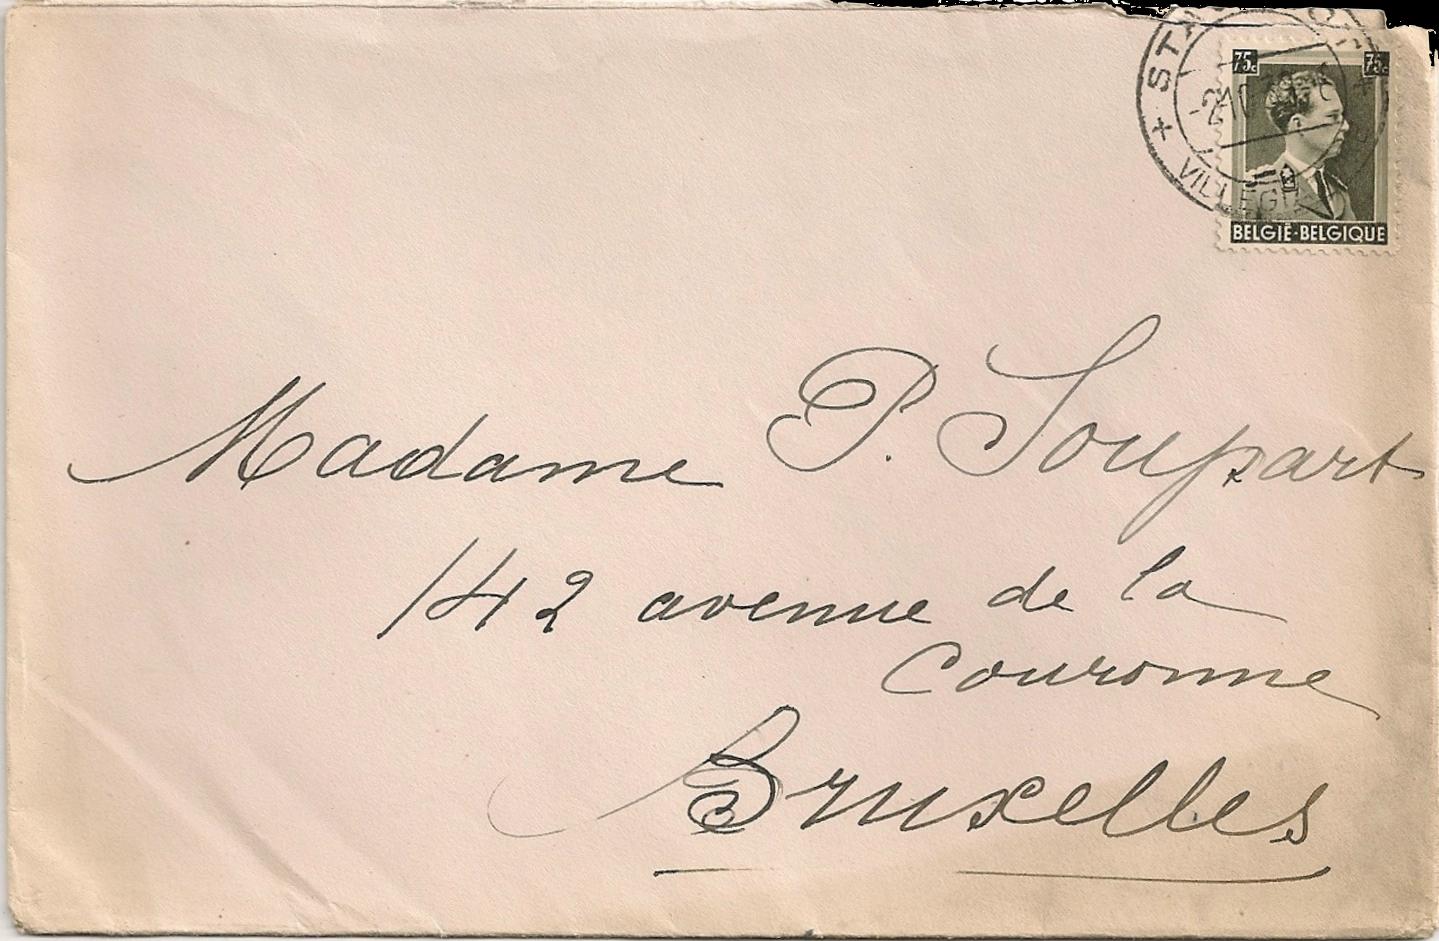 75c 75c
BELGIË-BELGIQUE
Madame P. Soupart
142 avenue de la
Couronne
Bruxelles